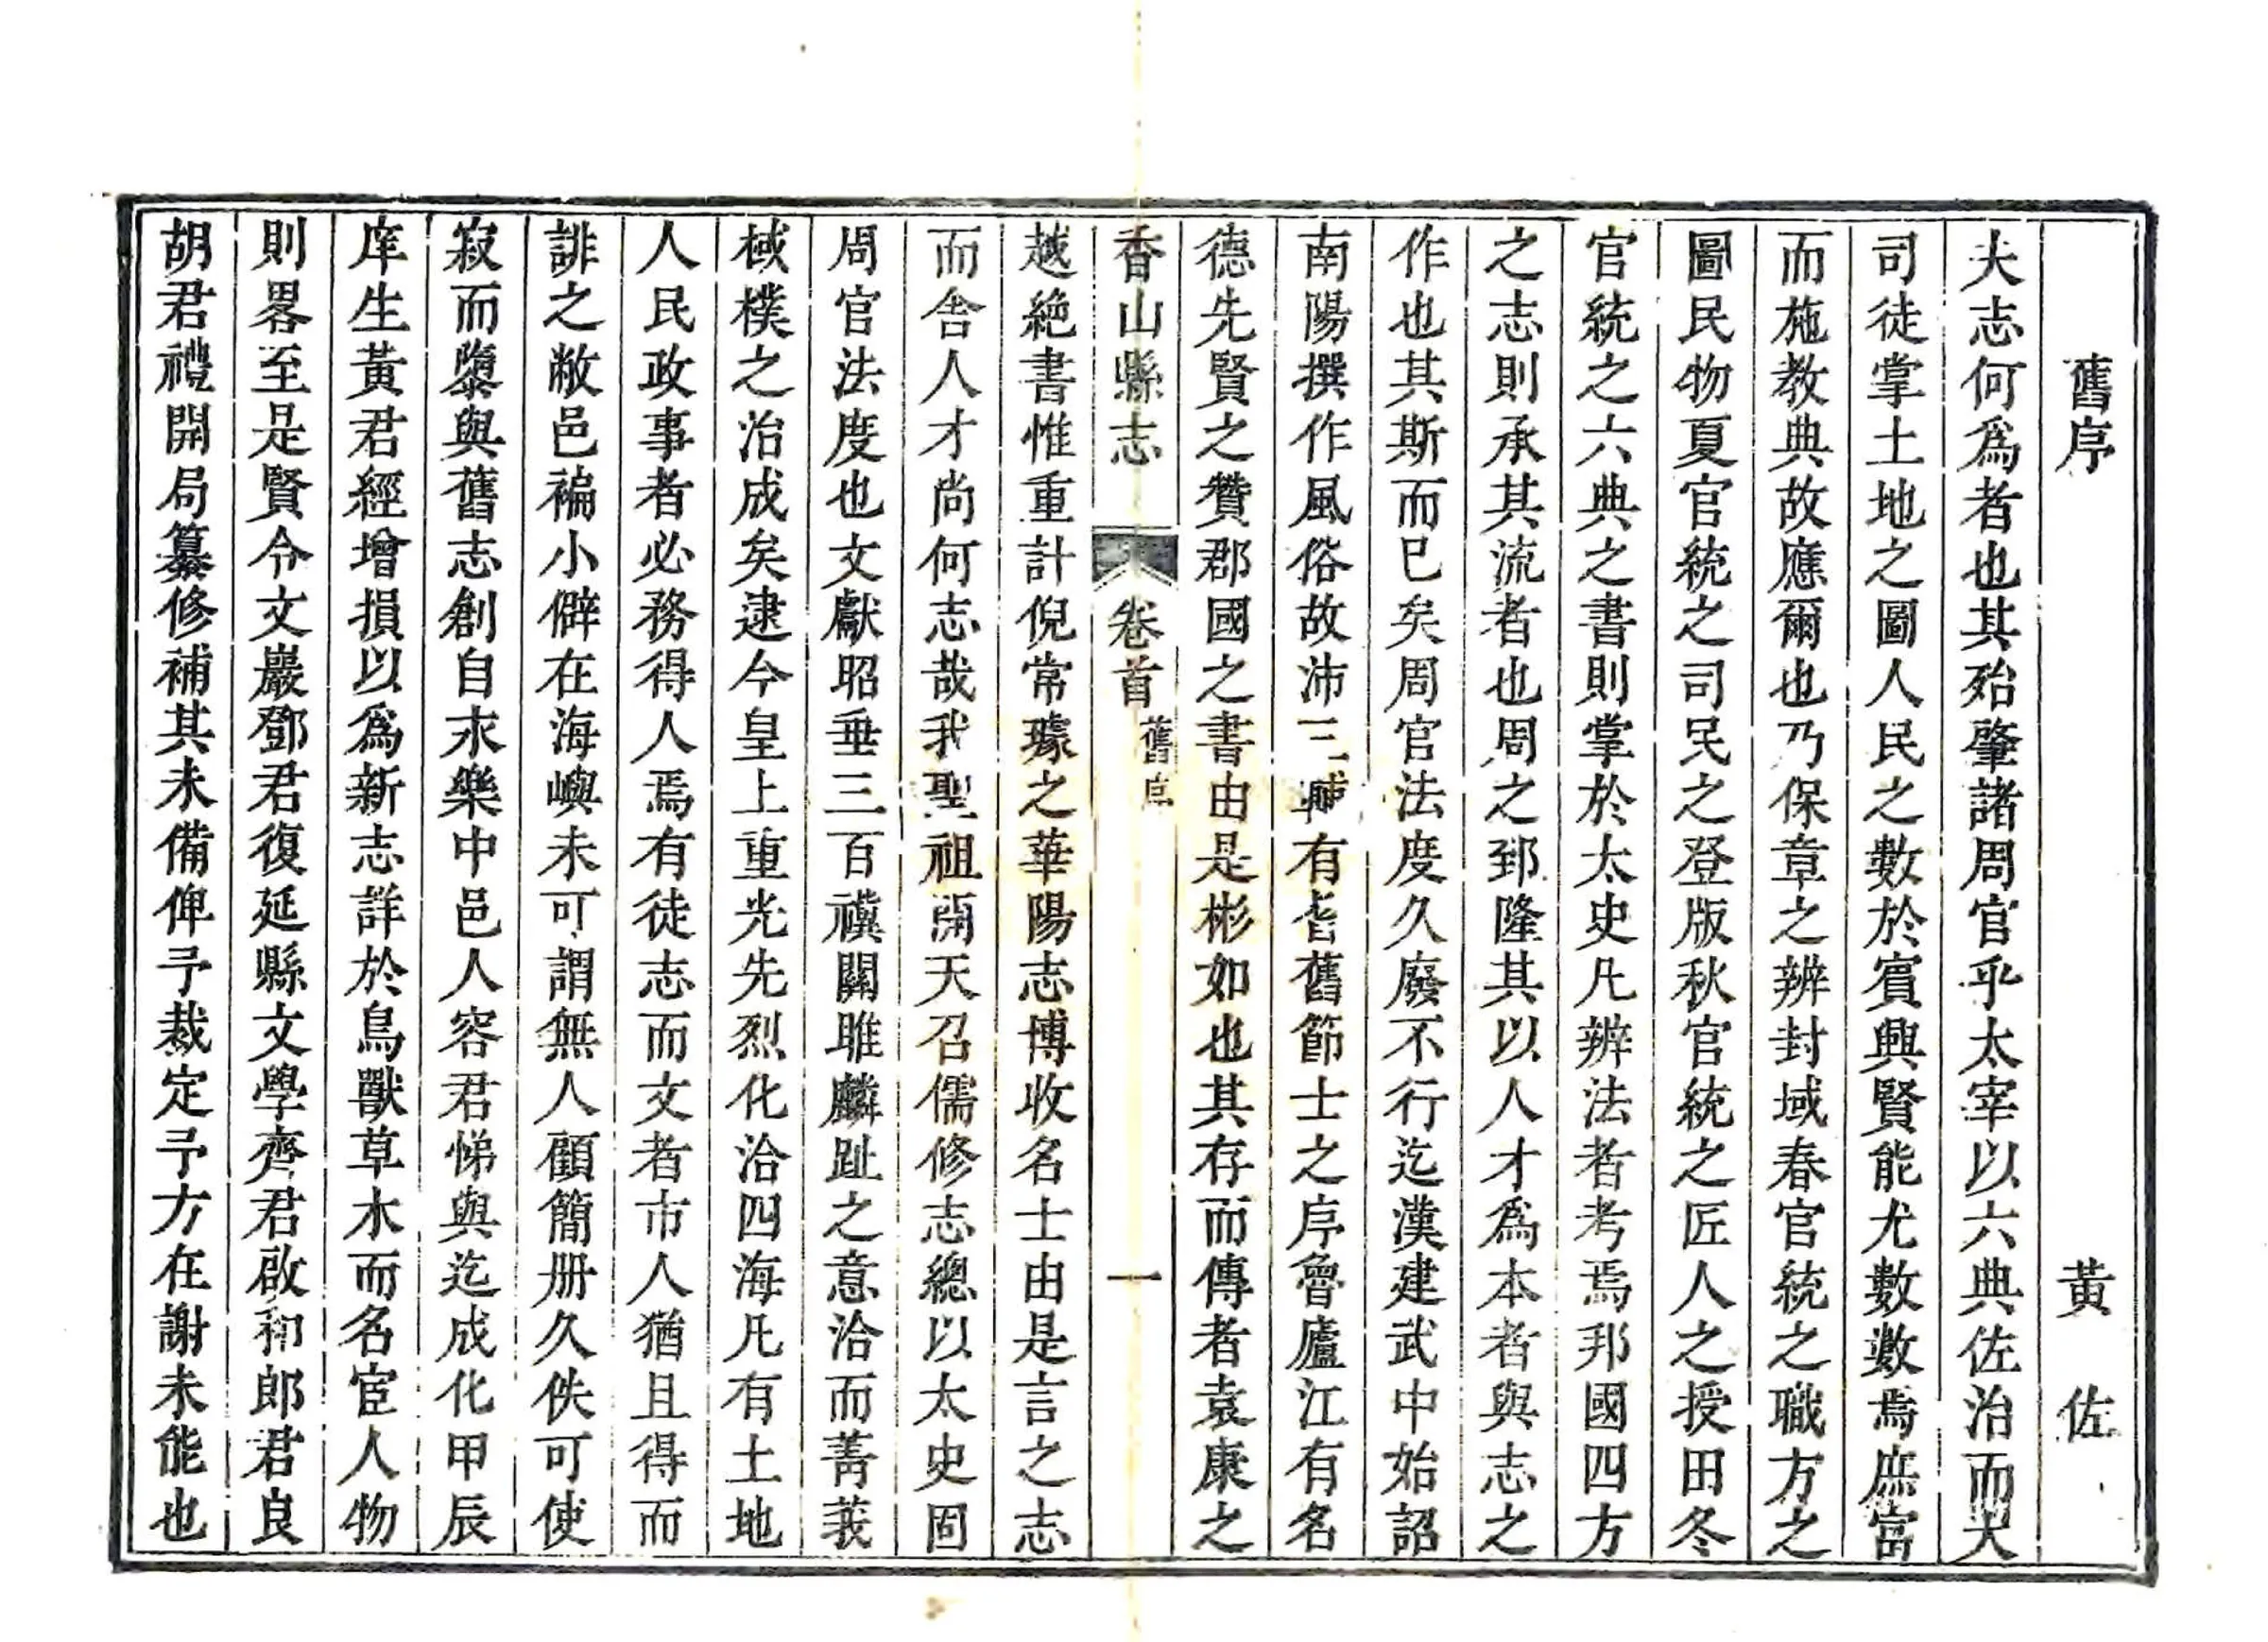 舊序 黃佐
夫志何爲者也其殆肇諸周官乎太宰以六典佐治而大
司徒掌土地之圖人民之數於賓興賢能尤數數焉庶富
而施教典故應爾也乃保章之辨封域春官統之職方之
圖民物夏官統之司民之登版秋官統之匠人之授田冬
官統之六典之書則掌於太史凡辨法者考焉邦國四方
之志則承其流者也周之郅隆其以人才爲本者與志之
作也其斯而已矣周官法度久廢不行迄漢建武中始詔
南陽撰作風俗故沛三輔有耆舊節士之序魯廬江有名
德先賢之贊郡國之書由是彬如也其存而傳者袁康之
香山縣志 卷首 舊序 一
越絶書惟重計倪常璩之華陽志博收名士由是言之志
而舍人才尚何志哉我聖祖開天召儒修志總以太史固
周官法度也文獻昭垂三百禩關雎麟趾之意洽而菁莪
棫樸之治成矣逮今皇上重光先烈化洽四海凡有土地
人民政事者必務得人焉有徒志而文者市人猶且得而
誹之敝邑褊小僻在海嶼未可謂無人顧簡册久佚可使
寂而隳與舊志創自永樂中邑人容君悌與迄成化甲辰
庠生黃君經增損以爲新志詳於鳥獸草木而名宦人物
則畧至是賢令文巖鄧君復延縣文學齊君啟和郎君良
胡君禮開局纂修補其未備俾予裁定予方在謝未能也